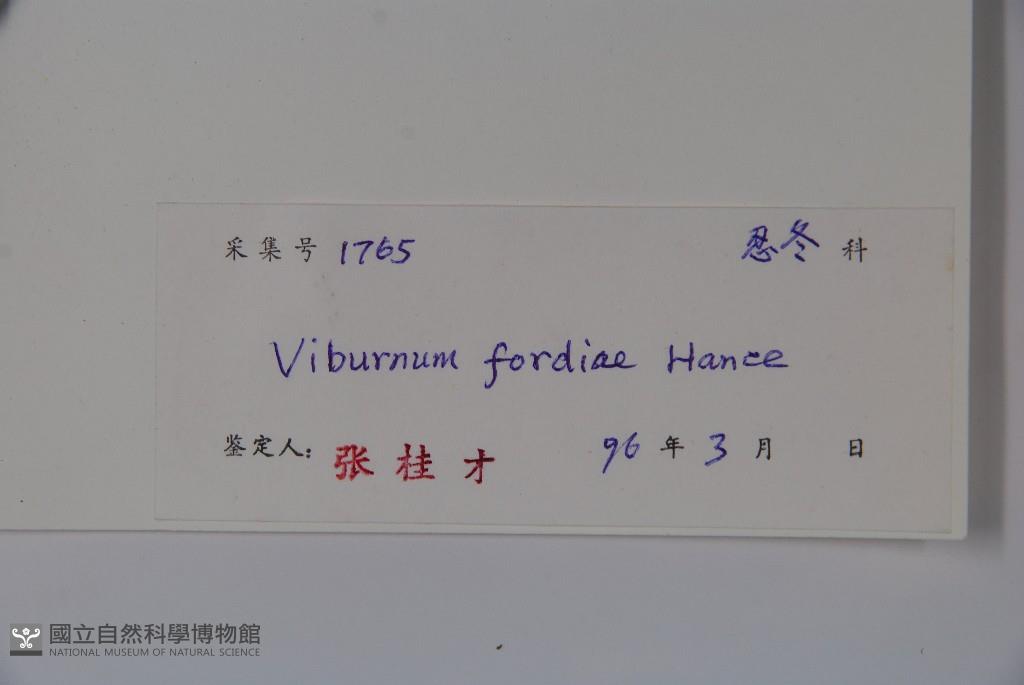 采集号 1765 忍冬 科
Viburnum fordiae Hance
鉴定人: 张桂才 96 年 3 月 日
國立自然科學博物館
NATIONAL MUSEUM OF NATURAL SCIENCE